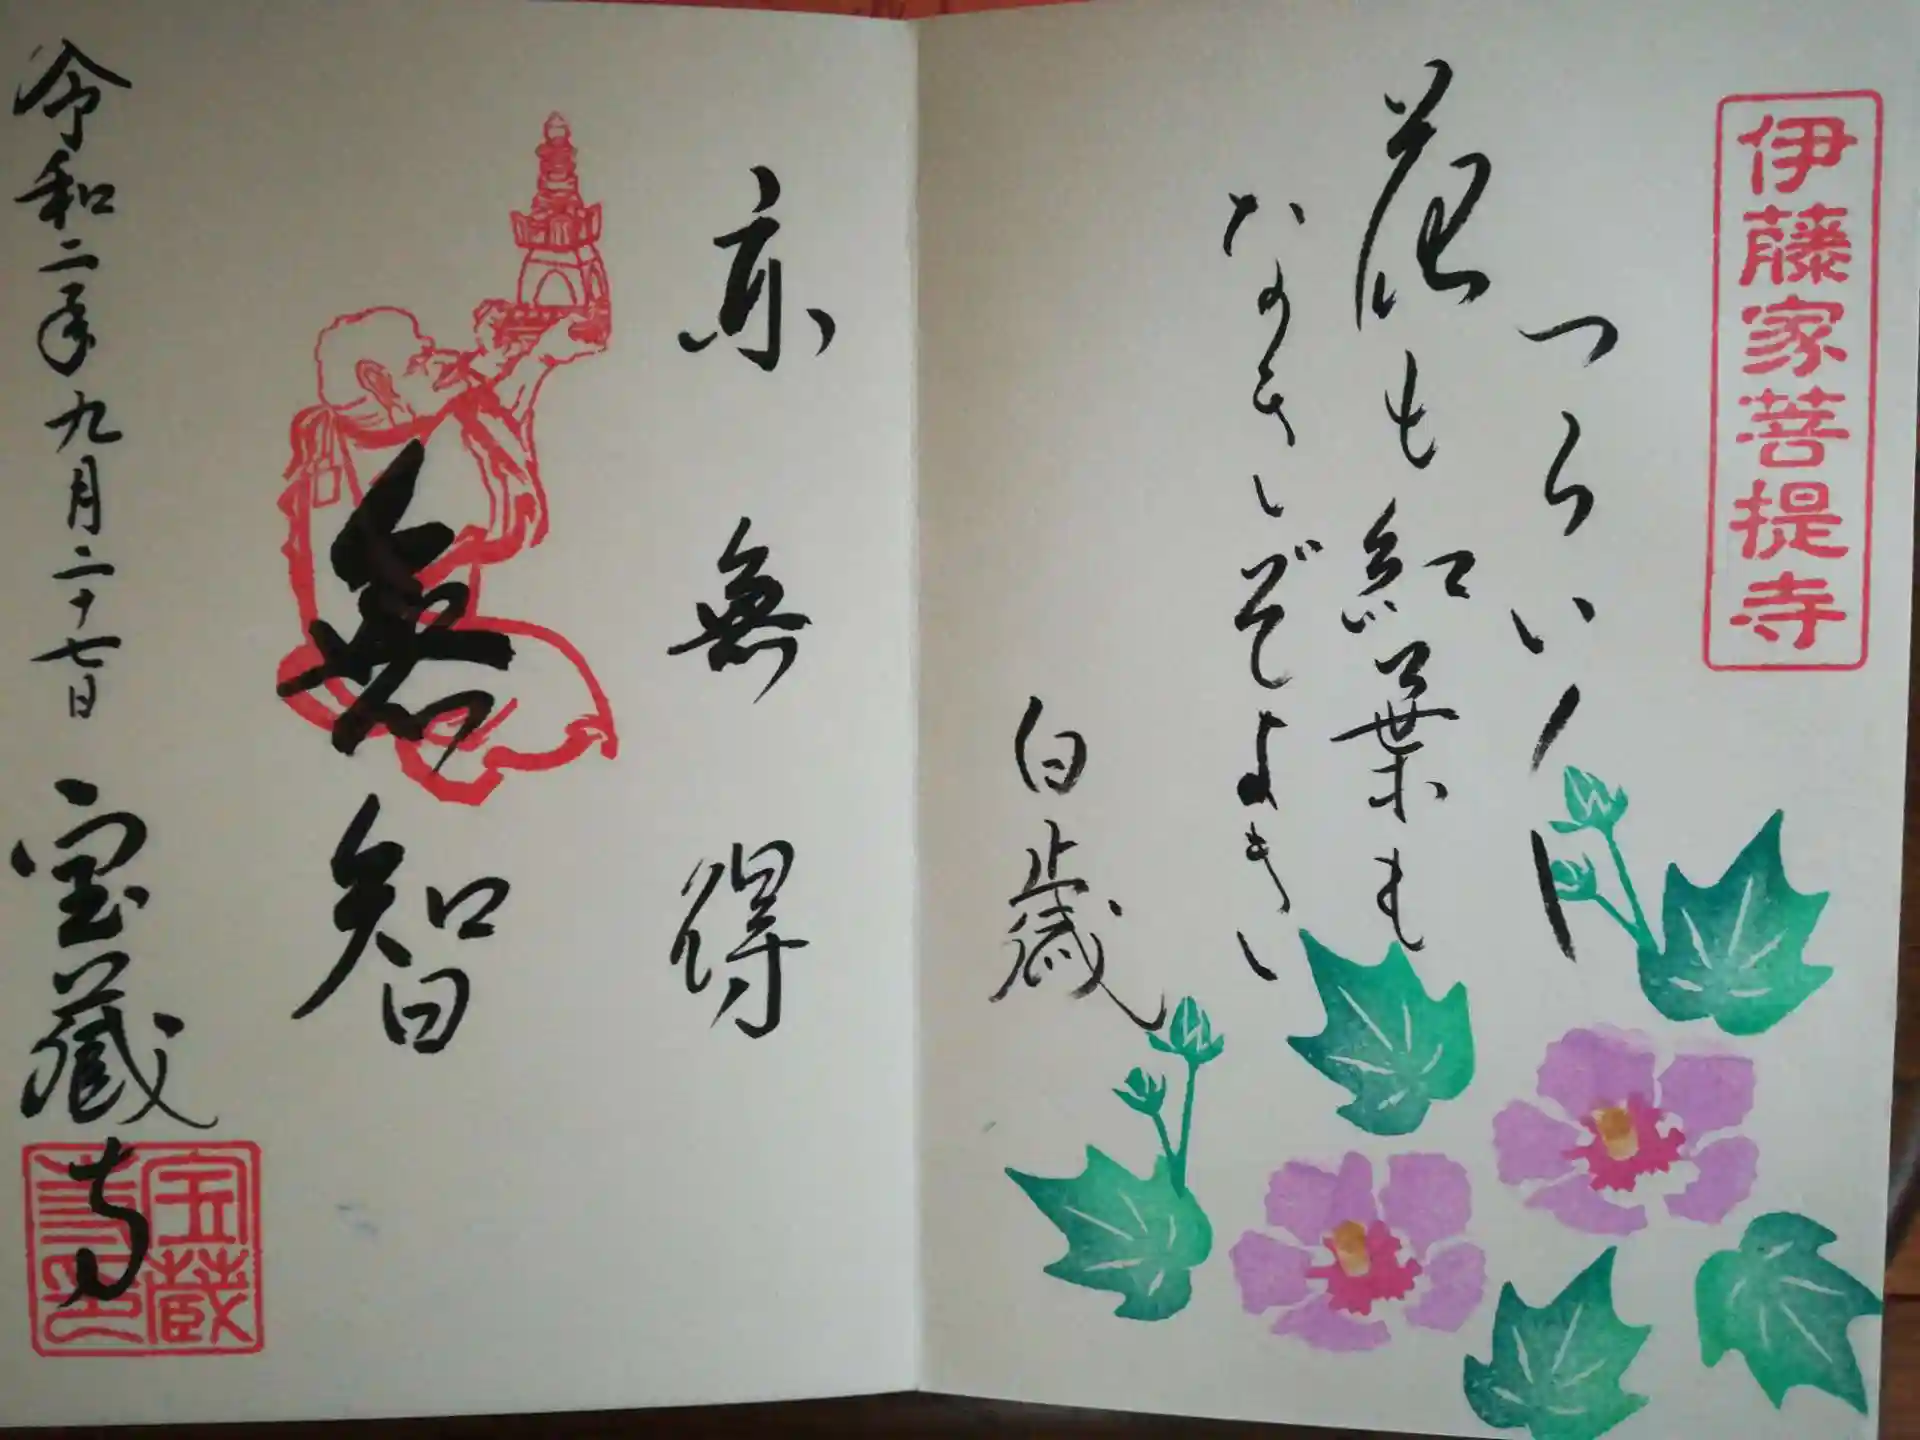 伊藤家菩提寺
つらい
花も紅葉も
ぞよき
白歳
亦無得
無智
令和二年九月二十七日 宝蔵寺
宝蔵
寺印